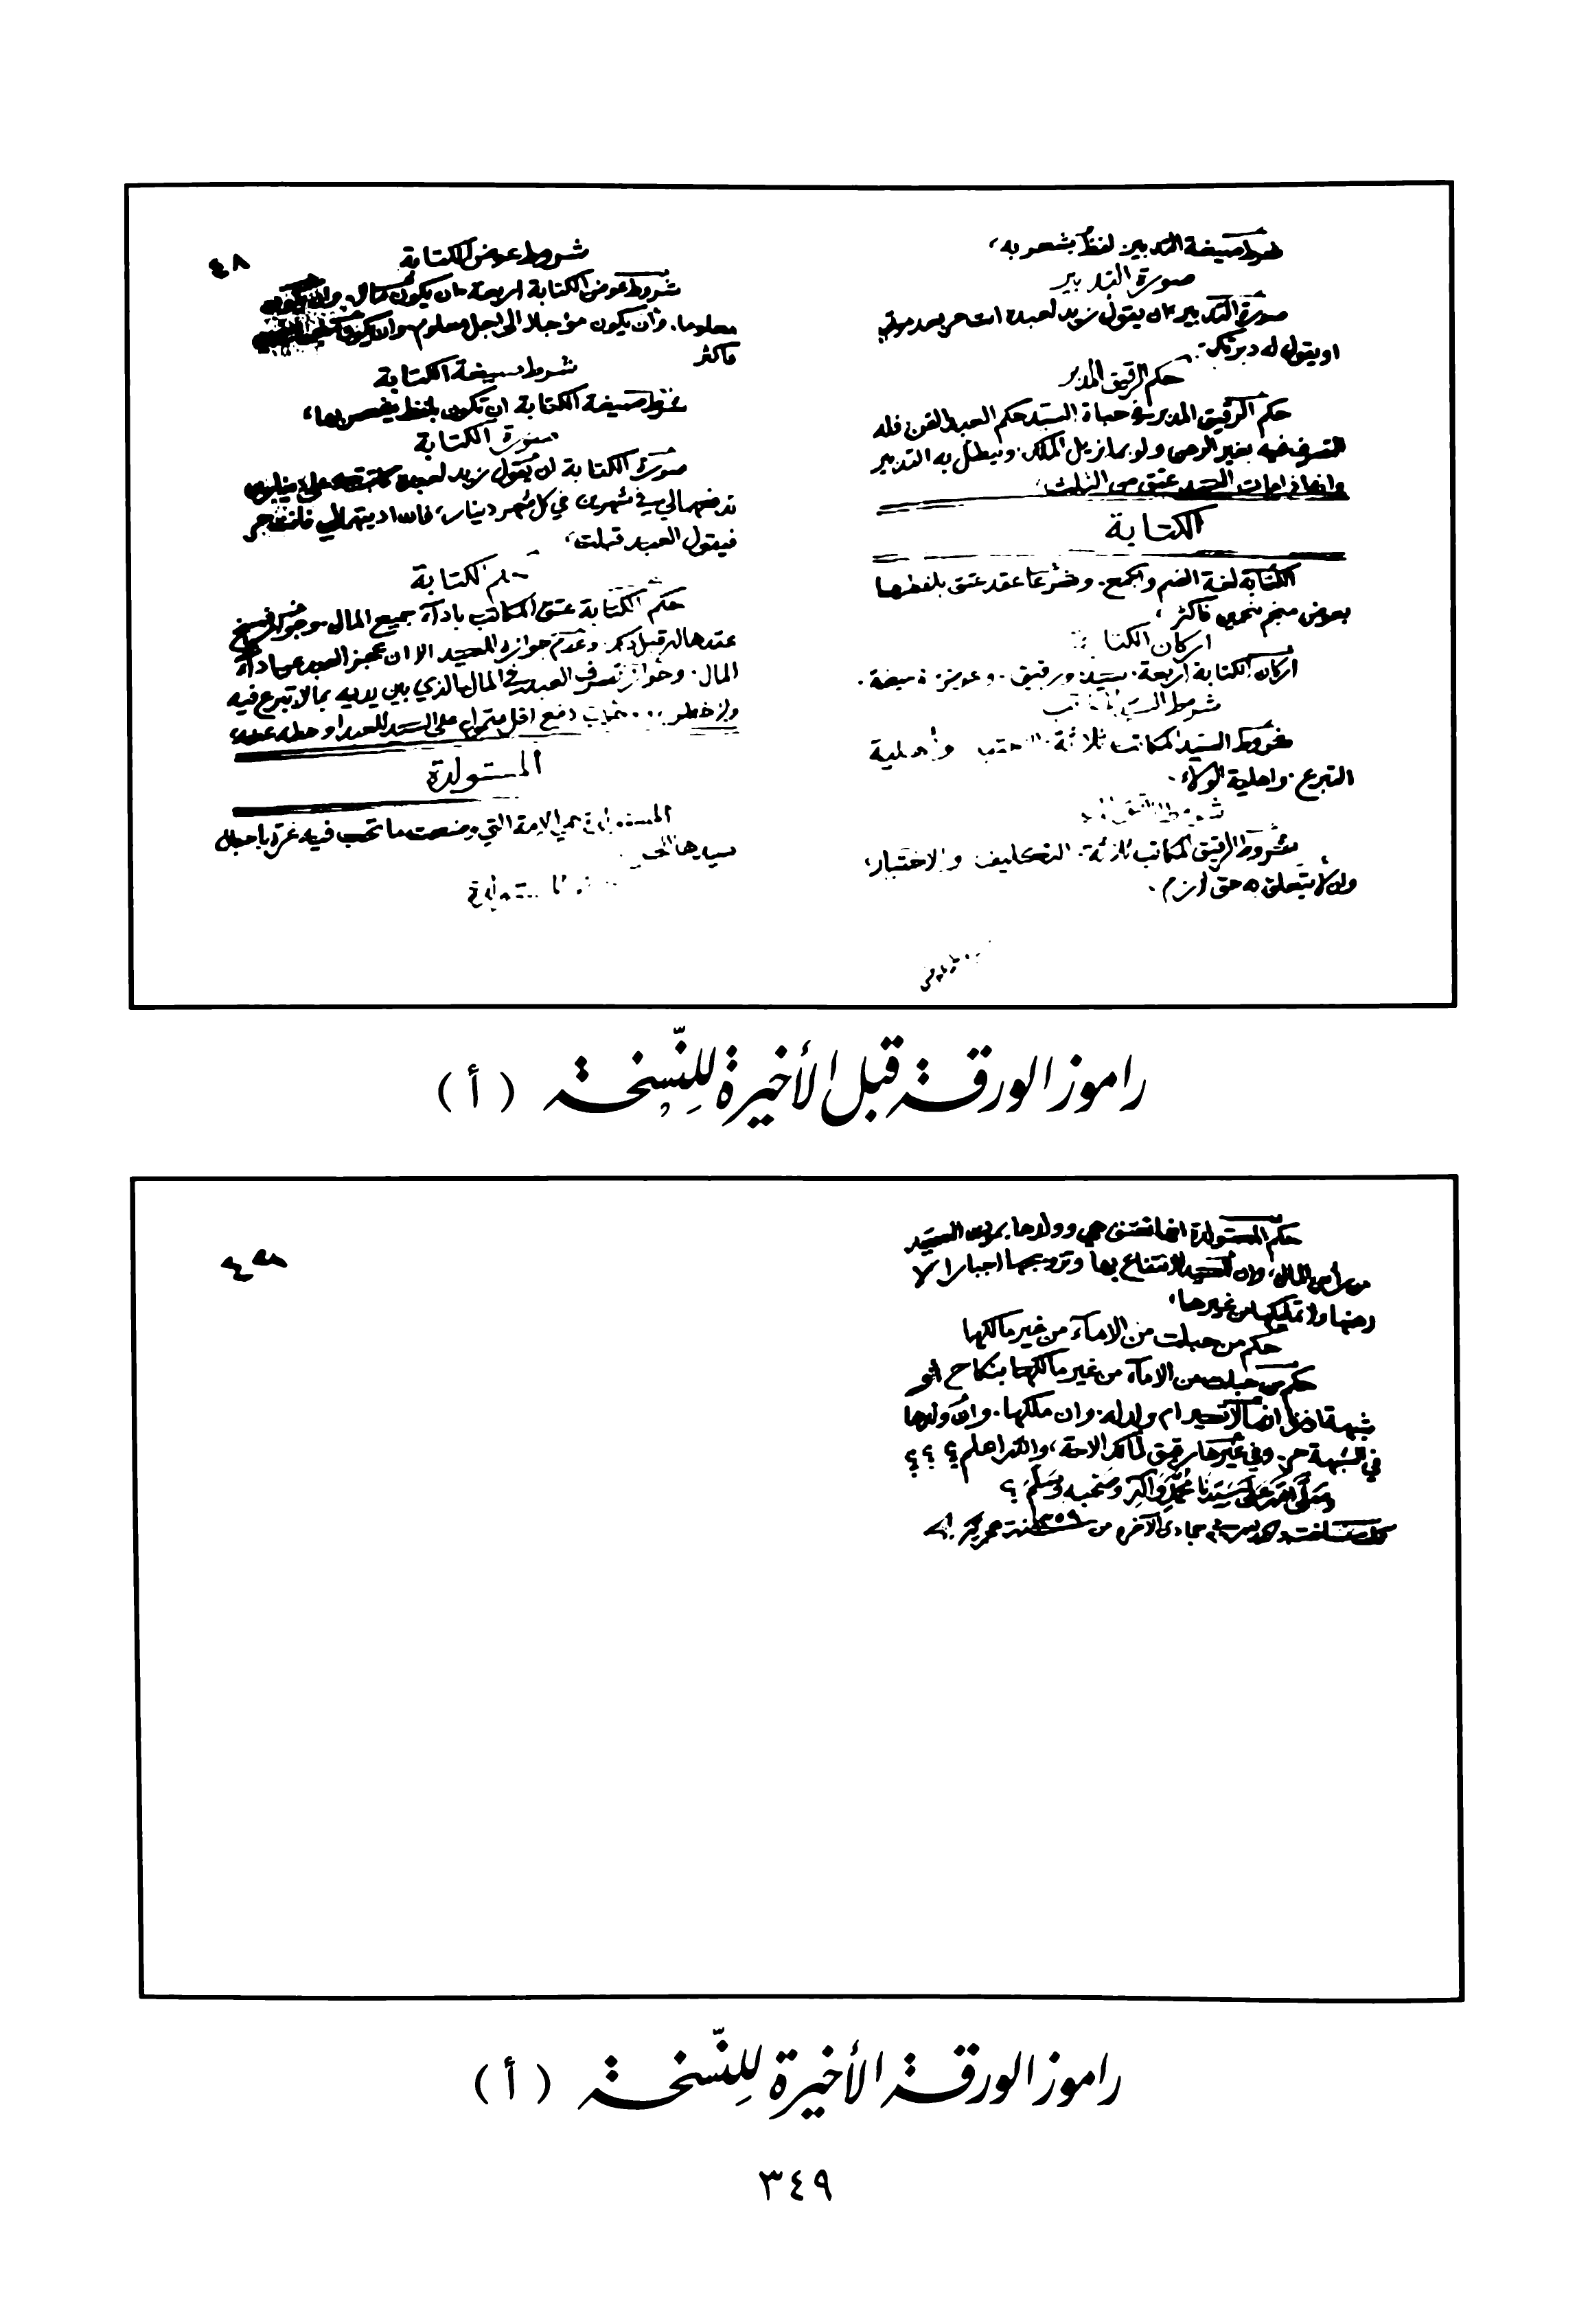 شرط صيغة التدبير لفظ يشعر به،
صورة التدبير
صورة التدبير ان يقول زيد لعبده انت حر بعد موتي
او يقول له دبرتك.
حكم الرقيق المدبر
حكم الرقيق المدبر في حياة السيد حكم العبد القن فله
التصرف فيه بغير الرهن ولو بما يزيل الملك. ويبطل به التدبير
وانه اذا مات السيد عتق من الثلث.
الكتابة
الكتابة لغة الضم والجمع. وشرعا عقد عتق بلفظها
بعوض منجم بنجمين فاكثر،
اركان الكتابة
اركان الكتابة اربعة. سيد. ورقيق. وعوض. وصيغة.
شروط السيد
شروط السيد المكاتب ثلاثة. وأهلية
التبرع. واهلية الولاء.
شروط الرقيق المكاتب ثلاثة. التكليف والاختيار،
وان لا يتعلق به حق لازم.
٤٨
شروط عوض الكتابة
شروط عوض الكتابة اربعة. ان يكون مال. وان يكون
معلوما. وان يكون مؤجلا الى اجل معلوم.
فاكثر
شرط صيغة الكتابة
شرط صيغة الكتابة ان تكون بلفظ يشعر بها،
صورة الكتابة
صورة الكتابة ان يقول زيد لعبده كاتبتك على دينارين
تدفعهما لي في شهرين في كل شهر دينار، فان اديتهما لي فانت حر
فيقول العبد قبلت،
حكم الكتابة
حكم الكتابة عتق المكاتب بادآء جميع المال. وجواز فسخ
عقدها له قبل ذلك. وعدم جوازه للسيد الا ان عجز العبد عن ادآء
المال. وجواز تصرف العبد في المال الذي بين يديه بما لا تبرع فيه
ولا خطر دفع اقل متمول على السيد للعبد او حطه عنه،
المستولدة
المستولدة هي الامة التي وضعت ما تجب فيه غرة باحبال
سيدها
المستولدة
راموز الورقة قبل الأخيرة للنّسخة (أ)
حكم المستولدة انها تعتق هي وولدها بموت السيد
من رأس المال، وان للسيد الانتفاع بها وتزويجها اجبارا لا
رهنها ولا تمليكها من غيرها،
حكم من حبلت من الامآء من غير مالكها
حكم من حبلت من الامآء من غير مالكها بنكاح او
شبهة او زنا انها لا تصير ام ولد له. وان ملكها. وان ولدها
في الشبهة حر. وفي غيرها رقيق لمالك الامة، والله اعلم
وصلى الله على سيدنا محمد وآله وصحبه وسلم
جمادى الآخره من سنة هجرية
راموز الورقة الأخيرة للنّسخة (أ)
٣٤٩